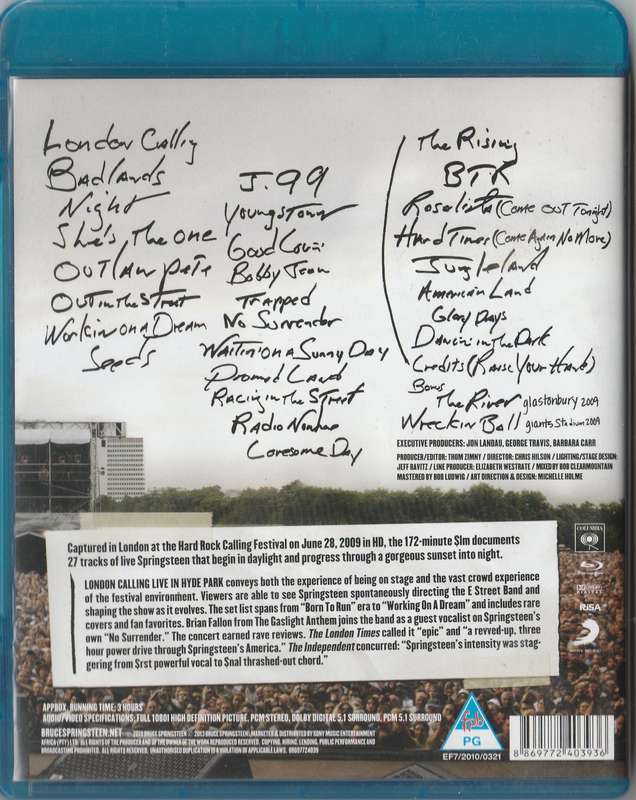 London Calling
Badlands
Night
She's The One
Outlaw Pete
Out in the Street
Workin on a Dream
Seeds
J.99
Youngstown
Good Lovin'
Bobby Jean
Trapped
No Surrender
Waitin' on a Sunny Day
Promised Land
Racing in the Street
Radio Nowhere
Lonesome Day
The Rising
BTR
Rosalita (Come Out Tonight)
Hard Times (Come Again No More)
Jungleland
American Land
Glory Days
Dancin' in the Dark
Credits (Raise Your Hand)
Bonus
The River glastonbury 2009
Wreckin Ball giants Stadium 2009
EXECUTIVE PRODUCERS: JON LANDAU, GEORGE TRAVIS, BARBARA CARR
PRODUCER/EDITOR: THOM ZIMNY / DIRECTOR: CHRIS HILSON / LIGHTING/STAGE DESIGN:
JEFF RAVITZ / LINE PRODUCER: ELIZABETH WESTRATE / MIXED BY BOB CLEARMOUNTAIN
MASTERED BY BOB LUDWIG / ART DIRECTION & DESIGN: MICHELLE HOLME
Captured in London at the Hard Rock Calling Festival on June 28, 2009 in HD, the 172-minute $lm documents
27 tracks of live Springsteen that begin in daylight and progress through a gorgeous sunset into night.
LONDON CALLING LIVE IN HYDE PARK conveys both the experience of being on stage and the vast crowd experience
of the festival environment. Viewers are able to see Springsteen spontaneously directing the E Street Band and
shaping the show as it evolves. The set list spans from "Born To Run" era to "Working On A Dream" and includes rare
covers and fan favorites. Brian Fallon from The Gaslight Anthem joins the band as a guest vocalist on Springsteen's
own "No Surrender." The concert earned rave reviews. The London Times called it "epic" and "a revved-up, three
hour power drive through Springsteen's America." The Independent concurred: "Springsteen's intensity was stag-
gering from $rst powerful vocal to $nal thrashed-out chord."
COLUMBIA
RiSA
APPROX. RUNNING TIME: 3 HOURS
AUDIO/VIDEO SPECIFICATIONS: FULL 1080I HIGH DEFINITION PICTURE, PCM STEREO, DOLBY DIGITAL 5.1 SURROUND, PCM 5.1 SURROUND
BRUCESPRINGSTEEN.NET © 2010 BRUCE SPRINGSTEEN ℗ 2013 BRUCE SPRINGSTEEN, MARKETED & DISTRIBUTED BY SONY MUSIC ENTERTAINMENT
AFRICA (PTY) LTD. ALL RIGHTS OF THE PRODUCER AND OF THE OWNER OF THE WORK REPRODUCED RESERVED. COPYING, HIRING, LENDING, PUBLIC PERFORMANCE AND
BROADCASTING PROHIBITED. ALL RIGHTS RESERVED. UNAUTHORISED DUPLICATION IS A VIOLATION OF APPLICABLE LAWS. 88697724039
fpb
PG
EF7/2010/0321
8 869772 403936